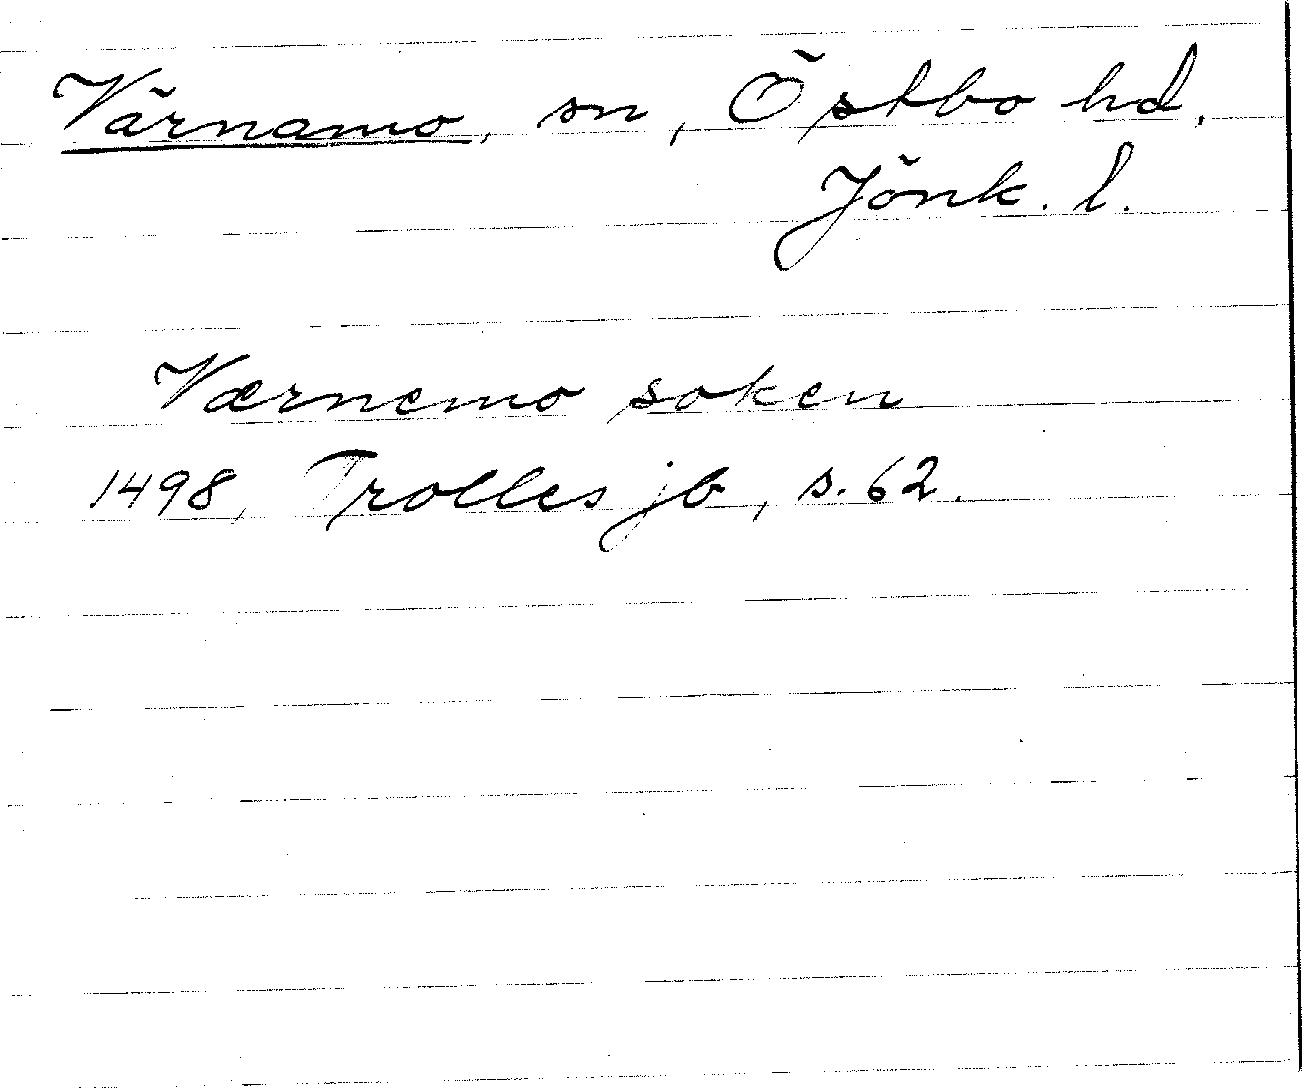 Värnamo, sn, Östbo hd,
Jönk. l.
Værnemo soken
1498, Trolles jb, s. 62.